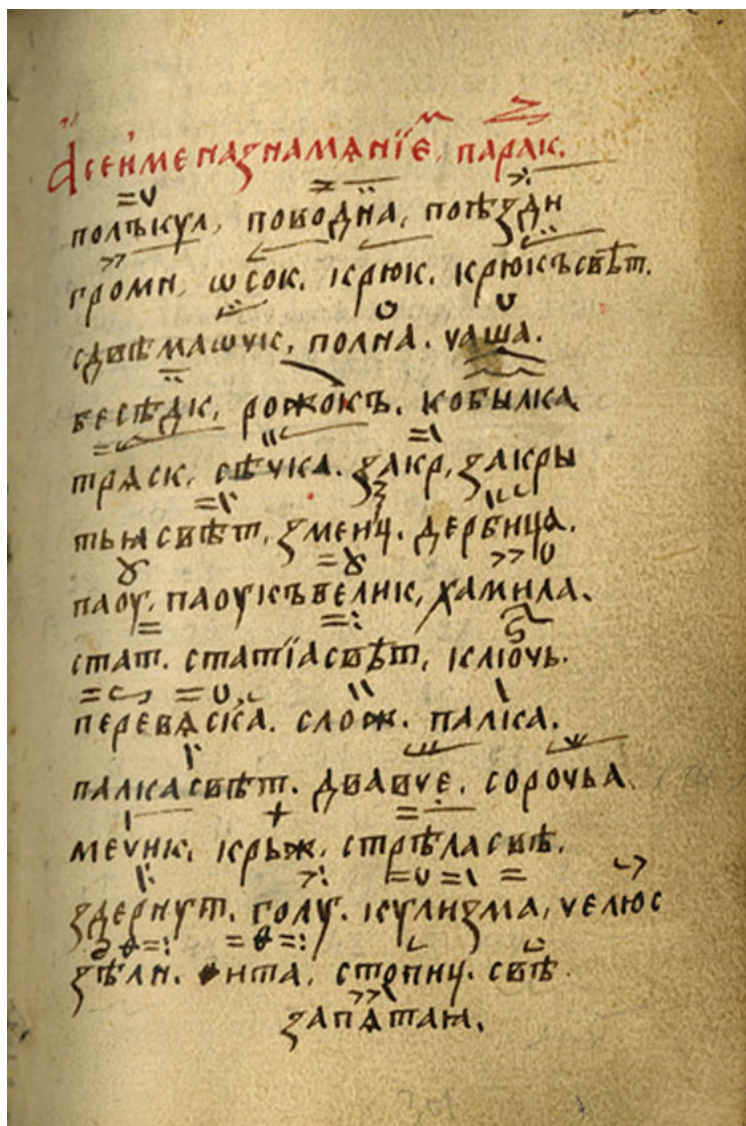 А сеи имена знамѧнїе. парак.
полъкул, поводна, поѣзди
громн, ѡсок. крюк. крюкъсвѣт.
сдвѣмаѡчк, полна. чаша.
бесѣдк, рожокъ. кобылка
трѧск. сѣчка. закр, закры
тыꙗсвѣт, змеиц. дербица.
паоу, паоукъвелик, хамила.
стат. статїасвѣт, ключь.
перевѧска. слож. палка.
палкасвѣт. двавче. сорочьа
мечик. крыж. стрѣласвѣ.
здернут. голу. кулизма, челюс
зѣли. ѳита, стопиц. свѣ
запѧтаꙗ.